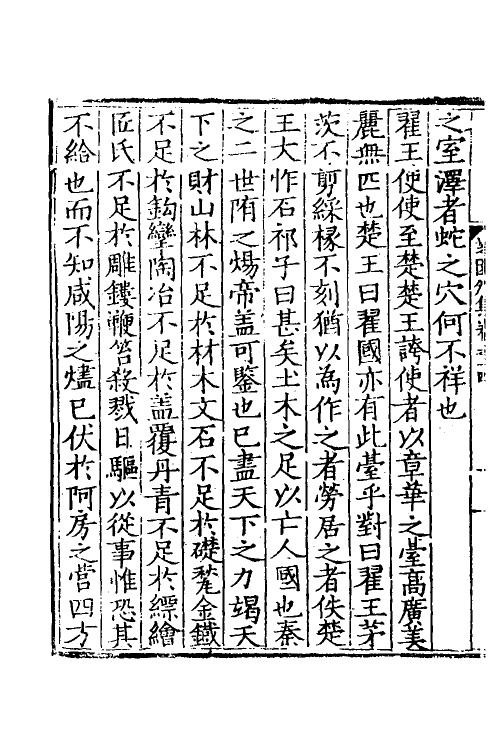 之室澤者蛇之穴何不祥也
翟王使使至楚楚王誇使者以章華之臺高廣美
麗無匹也楚王曰翟國亦有此臺乎對曰翟王茅
茨不剪綵椽不刻猶以為作之者勞居之者佚楚
王大怍石祁子曰甚矣土木之足以亡人國也秦
之二世隋之煬帝盖可鑒也已盡天下之力竭天
下之財山林不足於材木文石不足於礎甃金鐵
不足於鈎䜌陶冶不足於盖覆丹青不足於縹繪
匠氏不足於雕鏤鞭笞殺戮日驅以從事惟恐其
不給也而不知咸陽之燼已伏於阿房之营四方